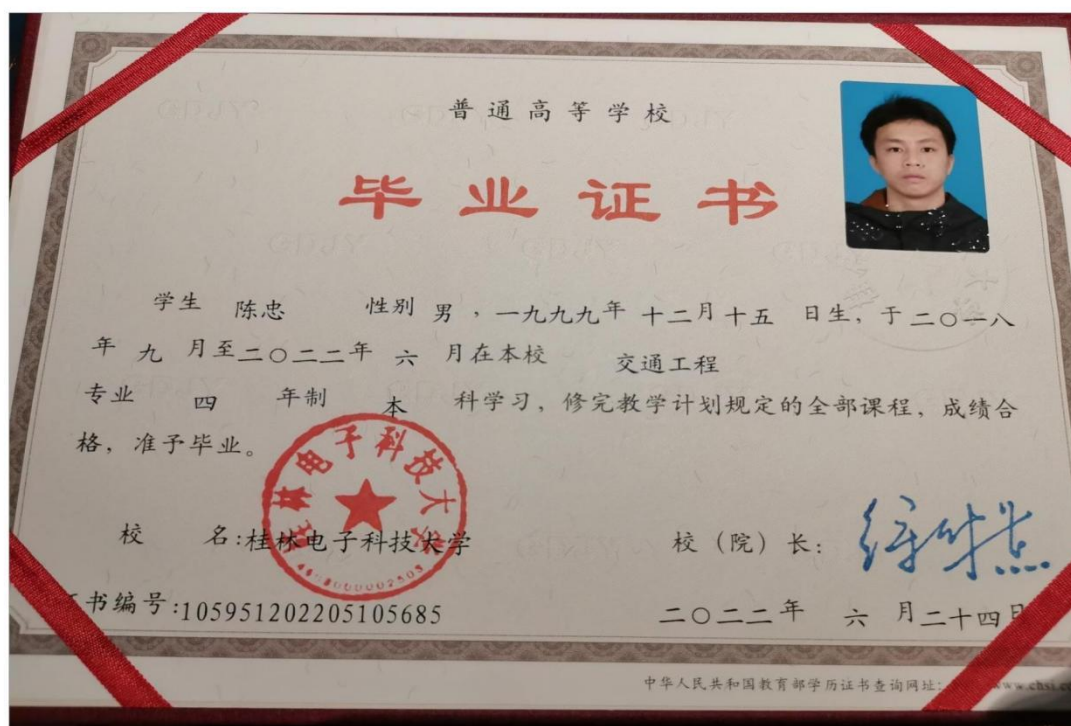 普通高等学校
毕业证书
学生 陈忠 性别 男，一九九九年 十二月 十五 日生，于二〇一八
年 九 月至二〇二二年 六 月在本校 交通工程
专业 四 年制 本 科学习，修完教学计划规定的全部课程，成绩合
格，准予毕业。
桂林电子科技大学
校 名:桂林电子科技大学 校（院）长：
书编号:105951202205105685 二〇二二年 六 月二十四日
中华人民共和国教育部学历证书查询网址: www.chsi.co